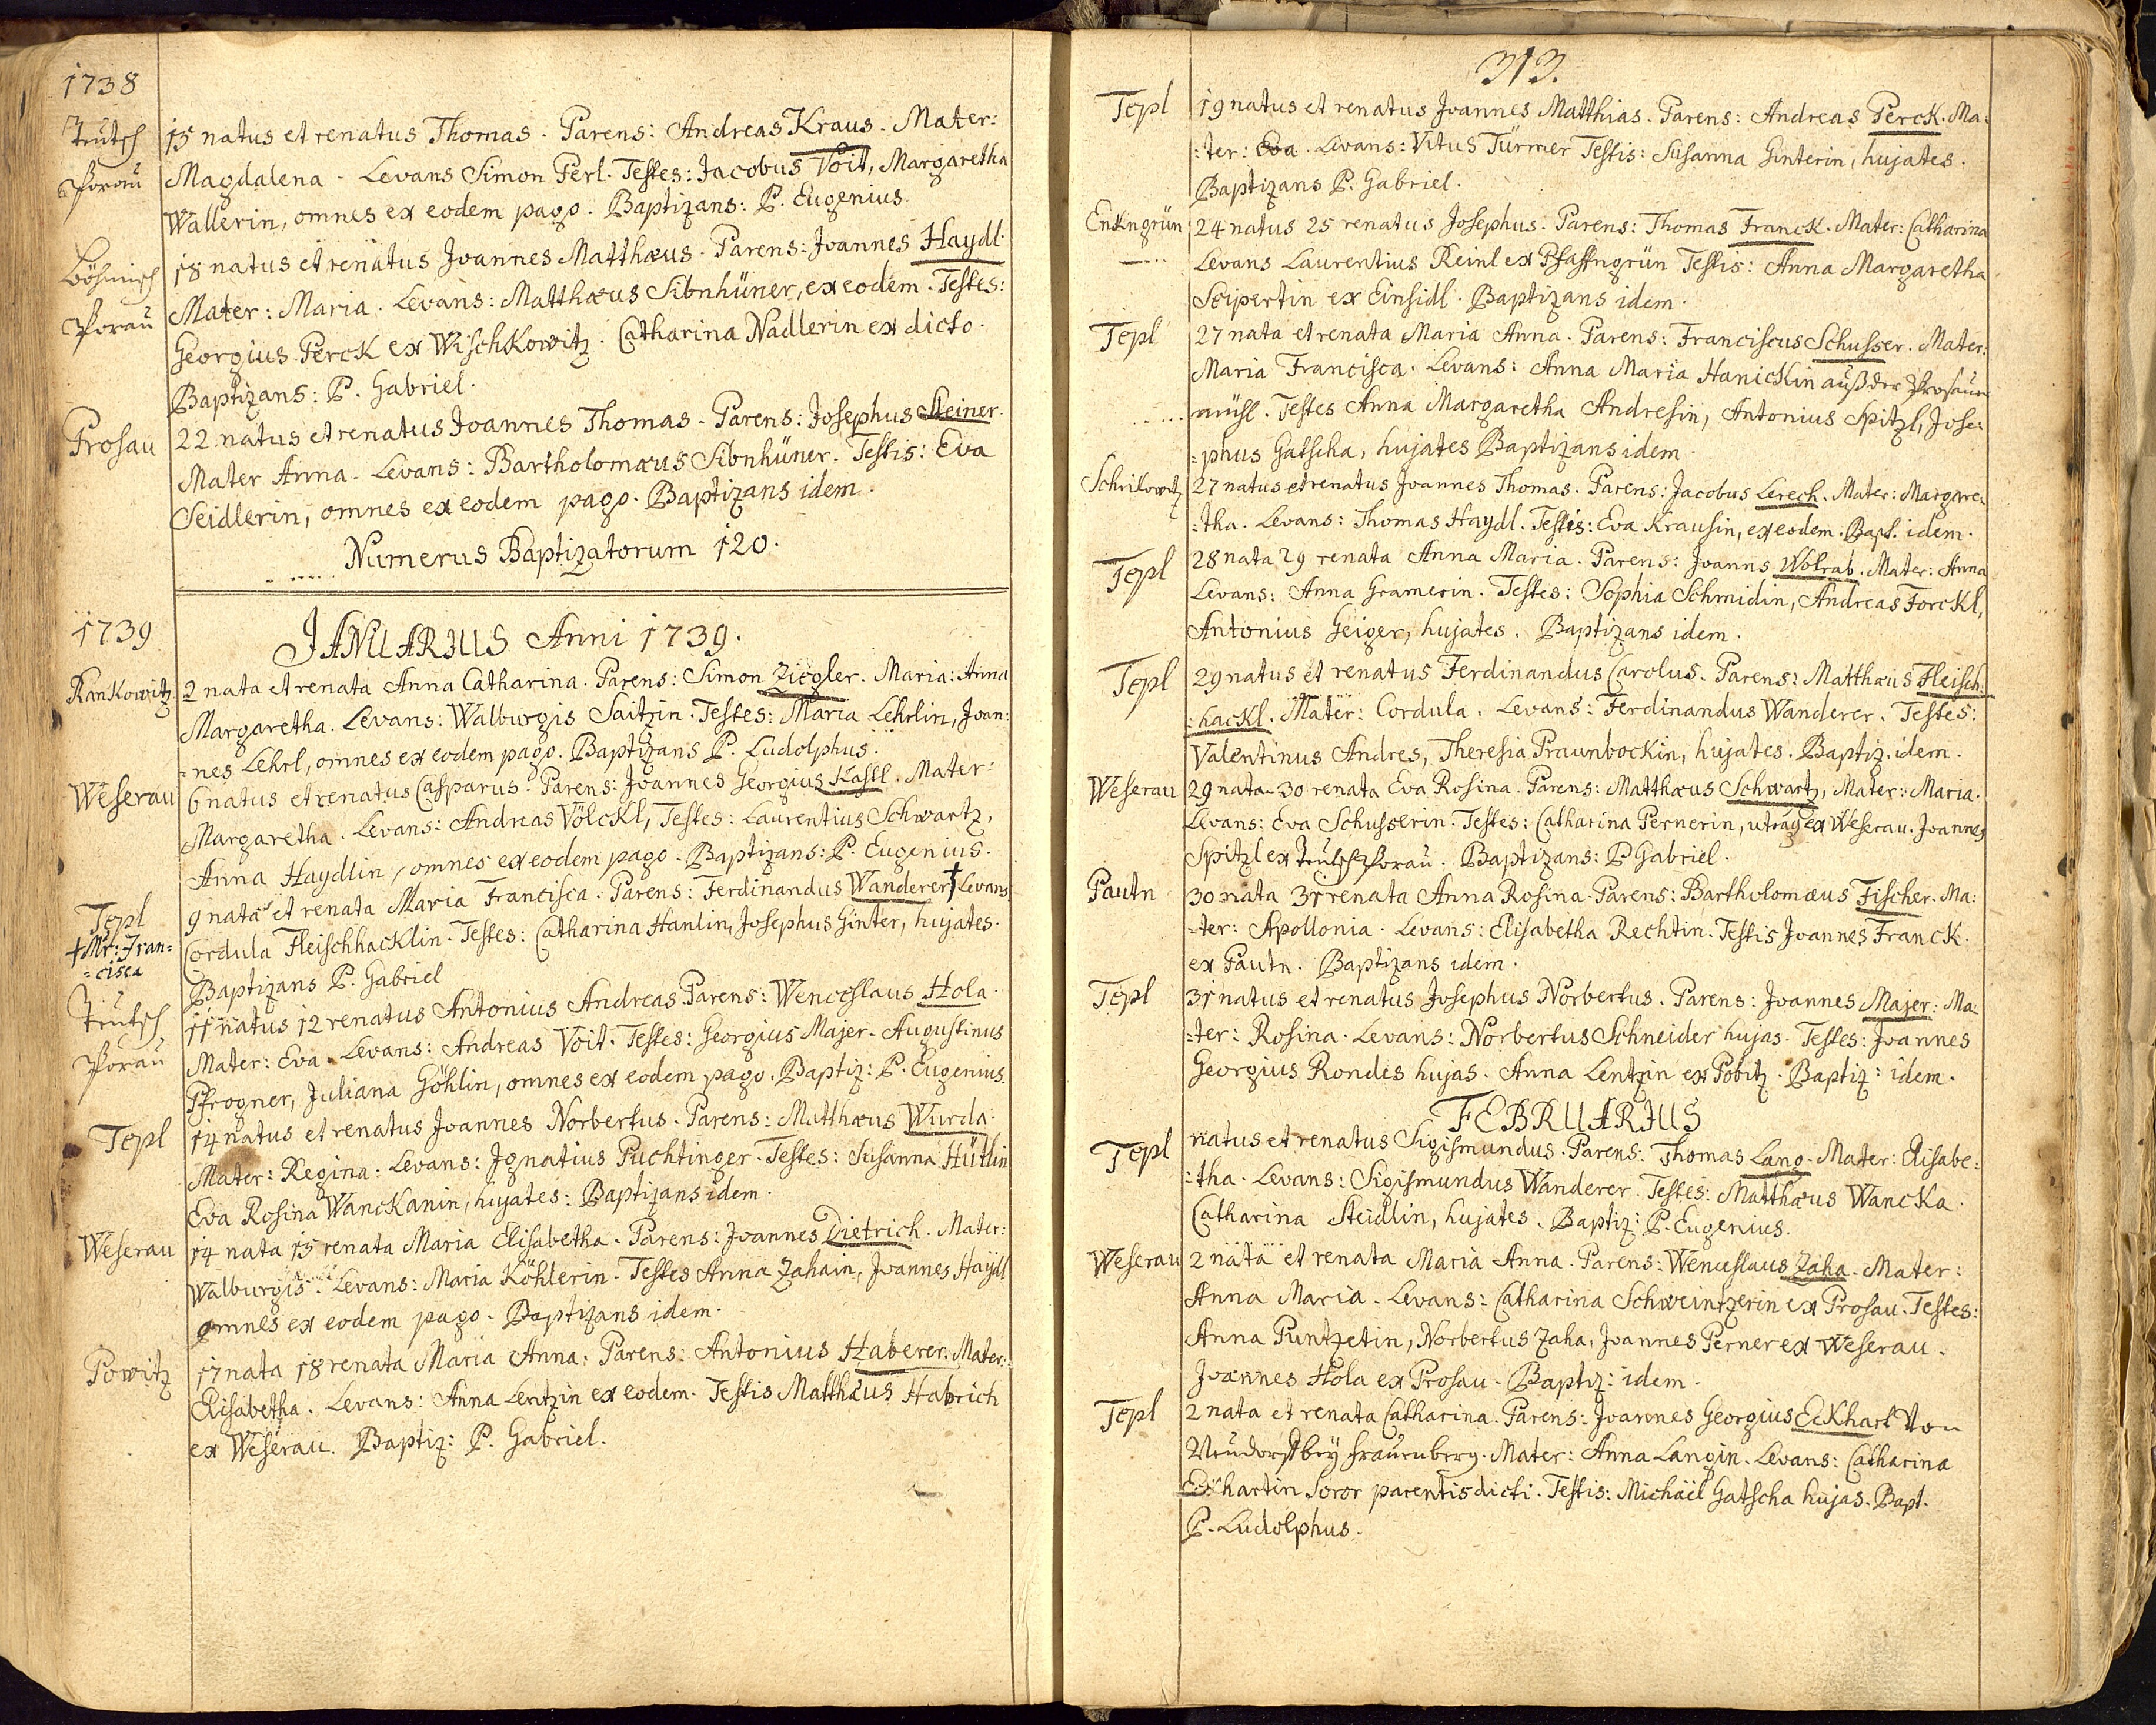 1738
Teutsch
Porau
15 natus et renatus Thomas. Parens: Andreas Kraus. Mater:
Magdalena. Levans Simon Perl. Testes: Jacobus Voit, Margaretha
Wallerin, omnes ex eodem pago. Baptizans: P. Eugenius.
Böhmisch
Porau
18 natus et renatus Joannes Matthæus. Parens: Joannes Haydl.
Mater: Maria. Levans: Matthæus Sibnhüner, ex eodem. Testes:
Georgius Perck ex Wischkowitz. Catharina Nadlerin ex dicto.
Baptizans: P. Gabriel.
Prosau
22 natus et renatus Joannes Thomas. Parens: Josephus Steiner.
Mater Anna. Levans: Bartholomæus Sibnhüner. Testis: Eva
Seidlerin, omnes ex eodem pago. Baptizans idem.
Numerus Baptizatorum 120.
1739
JANUARIUS Anni 1739.
Rankowitz
2 nata et renata Anna Catharina. Parens: Simon Ziegler. Maria: Anna
Margaretha. Levans: Walburgis Saitzin. Testes: Maria Lehrlin, Joan:
=nes Lehrl, omnes ex eodem pago. Baptizans P. Ludolphus.
Weserau
6 natus et renatus Casparus. Parens: Joannes Georgius Kastl. Mater:
Margaretha. Levans: Andreas Völckl, Testes: Laurentius Schwartz,
Anna Haydlin, omnes ex eodem pago. Baptizans: P. Eugenius.
Tepl
+ Mr: Fran=
=cisca
9 nata et renata Maria Francisca. Parens: Ferdinandus Wanderer † Levans
Cordula Fleischhacklin. Testes: Catharina Hanlin, Josephus Ginter, hujates.
Baptizans P. Gabriel
Teutsch
Porau
11 natus 12 renatus Antonius Andreas Parens: Wenceslaus Hola.
Mater: Eva. Levans: Andreas Voit. Testes: Georgius Majer. Augustinus
Pfrogner, Juliana Göhlin, omnes ex eodem pago. Baptiz: P. Eugenius.
Tepl
14 natus et renatus Joannes Norbertus. Parens: Matthæus Wurda.
Mater: Regina. Levans: Ignatius Puchtinger. Testes: Susanna Hütlin
Eva Rosina Wanckanin, hujates: Baptizans idem.
Weserau
14 nata 15 renata Maria Elisabetha. Parens: Joannes Dietrich. Mater:
Walburgis. Levans: Maria Köhlerin. Testes Anna Zahain, Joannes Haydl
omnes ex eodem pago. Baptizans idem.
Powitz
17 nata 18 renata Maria Anna. Parens: Antonius Haberer. Mater:
Elisabetha. Levans: Anna Lentzin ex eodem. Testis Matthæus Habrich
ex Weserau. Baptiz: P. Gabriel.
313.
Tepl
19 natus et renatus Joannes Matthias. Parens: Andreas Perck. Ma:
:ter: Eva. Levans: Vitus Türmer Testis: Susanna Ginterin, hujates.
Baptizans P. Gabriel.
Enkngrün
24 natus 25 renatus Josephus. Parens: Thomas Franck. Mater: Catharina
Levans Laurentius Reinl ex Pfaffngrün Testis: Anna Margaretha
Seipertin ex Einsidl. Baptizans idem.
Tepl
27 nata et renata Maria Anna. Parens: Franciscus Schusser. Mater:
Maria Francisca. Levans: Anna Maria Hanickin auß der Prosauer
mühl. Testes Anna Margaretha Andresin, Antonius Spitzl, Jose:
:phus Gatscha, hujates Baptizans idem.
Schrikowitz
27 natus et renatus Joannes Thomas. Parens: Jacobus Lerech. Mater: Margare:
:tha. Levans: Thomas Haydl. Testis: Eva Krausin, ex eodem. Bapt. idem.
Tepl
28 nata 29 renata Anna Maria. Parens: Joanns Wolrab. Mater: Anna
Levans: Anna Gramerin. Testes: Sophia Schmidin, Andreas Forckl,
Antonius Geiger, hujates. Baptizans idem.
Tepl
29 natus et renatus Ferdinandus Carolus. Parens: Matthæus Fleisch:
:hackl. Mater: Cordula. Levans: Ferdinandus Wanderer. Testes:
Valentinus Andres, Theresia Praunbockin, hujates. Baptiz. idem.
Weserau
29 nata 30 renata Eva Rosina. Parens: Matthæus Schwartz, Mater: Maria.
Levans: Eva Schusserin. Testes: Catharina Pernerin, utraq ex Weserau. Joannes
Spitzl ex Teutschporau. Baptizans: P Gabriel.
Pautn
30 nata 31 renata Anna Rosina. Parens: Bartholomæus Fischer. Ma:
:ter: Apollonia. Levans: Elisabetha Rechtin. Testis Joannes Franck.
ex Pautn. Baptizans idem.
Tepl
31 natus et renatus Josephus Norbertus. Parens: Joannes Majer. Ma:
:ter: Rosina. Levans: Norbertus Schneider hujas. Testes: Joannes
Georgius Rondes hujas. Anna Lentzin ex Pobitz. Baptiz: idem.
FEBRUARIUS
Tepl
natus et renatus Sigismundus. Parens: Thomas Lang. Mater: Elisabe:
:tha. Levans: Sigismundus Wanderer. Testes: Matthæus Wancka.
Catharina Steidlin, hujates. Baptiz: P. Eugenius.
Weserau
2 nata et renata Maria Anna. Parens: Wenceslaus Zaha. Mater:
Anna Maria. Levans: Catharina Schweintzerin ex Prosau. Testes:
Anna Puntzetin, Norbertus Zaha, Joannes Perner ex Weserau.
Joannes Hola ex Prosau. Baptiz: idem.
Tepl
2 nata et renata Catharina. Parens: Joannes Georgius Eckhart von
Neudorff bey Frauenberg. Mater: Anna Langin. Levans: Catharina
Eckhartin soror parentis dicti. Testis: Michaël Gatscha hujas. Bapt.
P. Ludolphus.